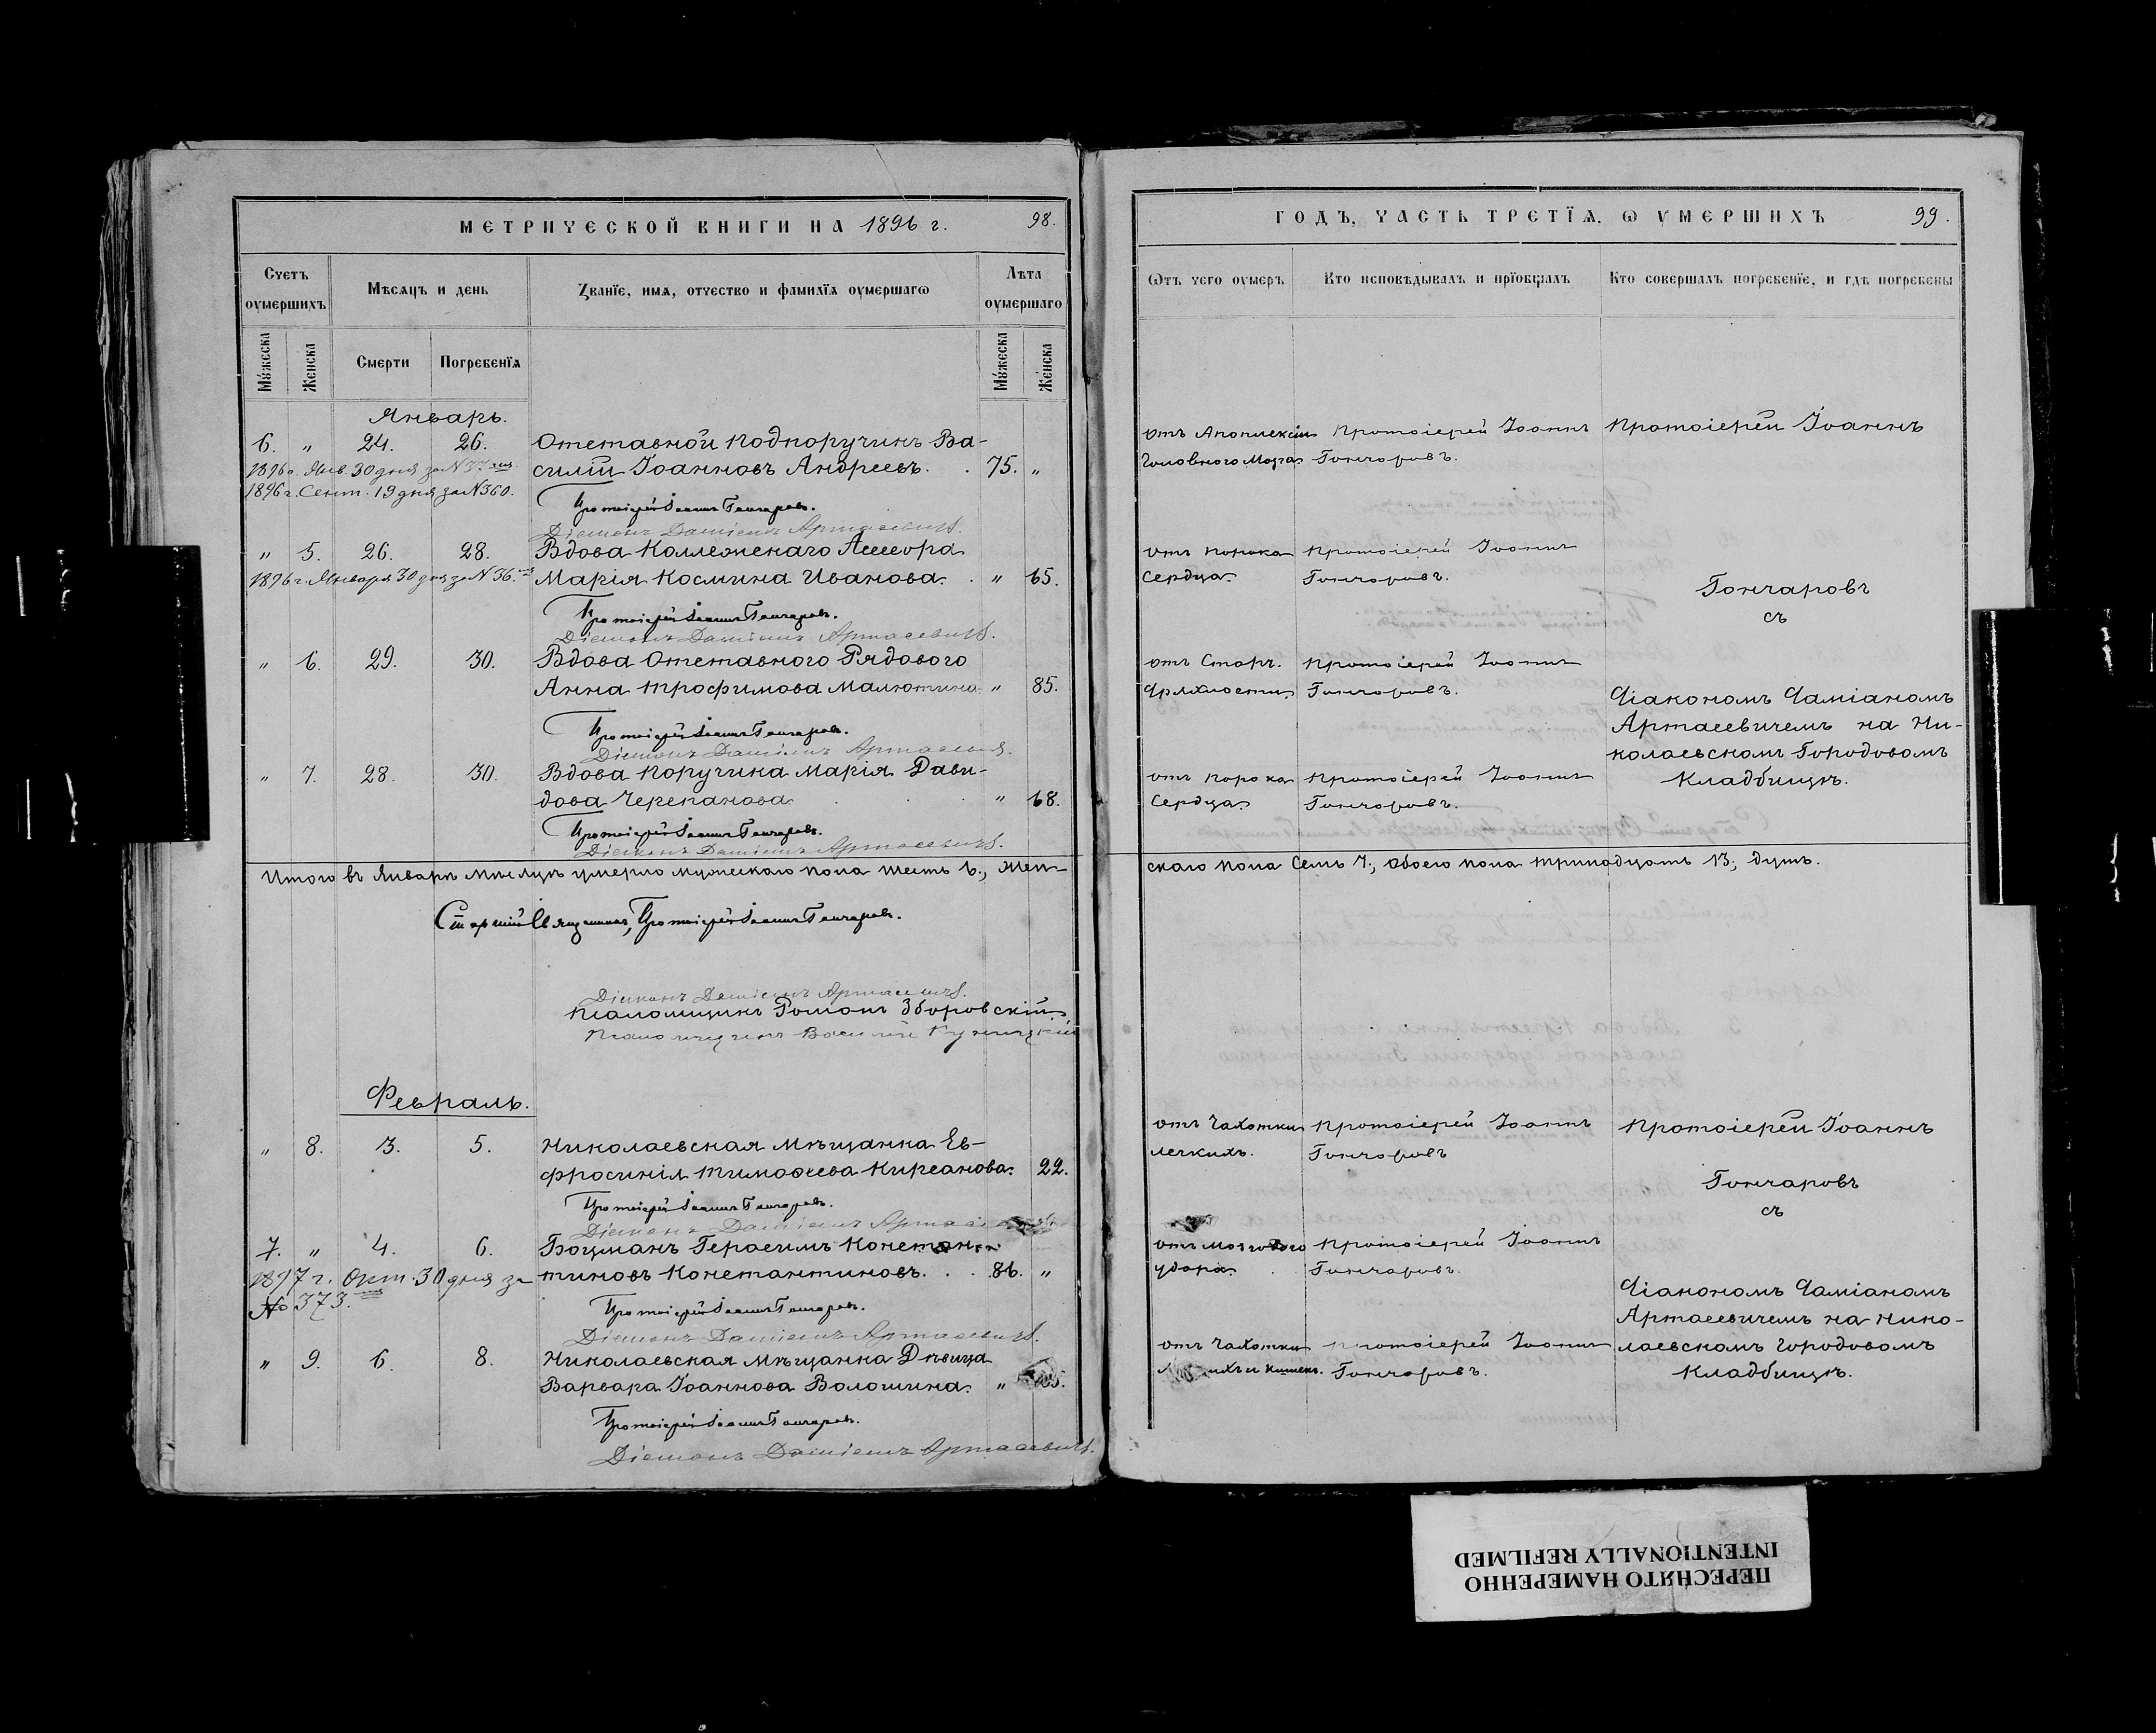 МЕТРИЧЕСКОЙ КНИГИ НА 1896 г. 98.
Счетъ оумершихъ
Мѣсяцъ и день
Званїе, имѧ, отчество и фамилїѧ оумершагѡ
Лѣта оумершаго
Мꙋжеска
Женска
Смерти
Погребенїѧ
Мꙋжеска
Женска
Январь.
6. „ 24. 26. Отставной Подпоручикъ Ва-
1896 г. Янв. 30 дня за N 37. силій Іоанновъ Андреевъ. . 75. „
1896 г. Сент. 19 дня за N 360.
Протоіерей Іоаннъ Гончаровъ.
Діаконъ Даміанъ Артасевичъ.
„ 5. 26. 28. Вдова Коллежскаго Ассесора
1896 г. Января 30 дня за N 36. Марія Космина Иванова. . „ 65.
Протоіерей Іоаннъ Гончаровъ.
Діаконъ Даміанъ Артасевичъ.
„ 6. 29. 30. Вдова Отставного Рядового
Анна Трофимова Малютина. „ 85.
Протоіерей Іоаннъ Гончаровъ.
Діаконъ Даміанъ Артасевичъ.
„ 7. 28. 30. Вдова Поручика Марія Дави-
дова Черепанова . . . „ 68.
Протоіерей Іоаннъ Гончаровъ.
Діаконъ Даміанъ Артасевичъ.
Итого въ Январѣ мѣсяцѣ умерло мужескаго пола шесть 6., жен-
Старшій Священникъ, Протоіерей Іоаннъ Гончаровъ.
Діаконъ Даміанъ Артасевичъ.
Псаломщикъ Романъ Зборовскій.
Псаломщикъ Василій
Февраль.
„ 8. 3. 5. Николаевская Мѣщанка Ев-
фросинія Тимоѳеева Кирсанова. 22.
Протоіерей Іоаннъ Гончаровъ.
Діаконъ Даміанъ
7. „ 4. 6. Боцманъ Герасимъ Констан-
1897 г. Окт. 30 дня за тиновъ Константиновъ. . . 86. „
No 373.
Протоіерей Іоаннъ Гончаровъ.
Діаконъ Даміанъ Артасевичъ.
„ 9. 6. 8. Николаевская Мѣщанка Дѣвица
Варвара Іоаннова Волошина. „
Протоіерей Іоаннъ Гончаровъ.
Діаконъ Даміанъ Артасевичъ.
ГОДЪ, ЧАСТЬ ТРЕТЇѦ, Ѡ ОУМЕРШИХЪ 99.
Ѿтъ чего оумеръ
Кто исповѣдывалъ и прїобщалъ
Кто совершалъ погребенїе, и гдѣ погребены
отъ Апоплексіи Протоіерей Іоаннъ Протоіерей Іоаннъ
Головного Мозга. Гончаровъ.
отъ порока Протоіерей Іоаннъ
Сердца. Гончаровъ.
Гончаровъ
съ
отъ Старч. Протоіерей Іоаннъ
Дряхлости. Гончаровъ.
Діакономъ Даміаномъ
Артасевичемъ на Ни-
колаевскомъ Городовомъ
Кладбищѣ.
отъ порока Протоіерей Іоаннъ
Сердца. Гончаровъ.
скаго пола Семь 7., обоего пола тринадцать 13., душъ.
отъ Чахотки Протоіерей Іоаннъ Протоіерей Іоаннъ
легкихъ. Гончаровъ
Гончаровъ
съ
отъ мозгового Протоіерей Іоаннъ
удара. . Гончаровъ.
Діакономъ Даміаномъ
Артасевичемъ на Нико-
отъ Чахотки Протоіерей Іоаннъ лаевскомъ Городовомъ
и кишекъ. Гончаровъ. Кладбищѣ.
ПЕРЕСНЯТО НАМЕРЕННО
INTENTIONALLY REFILMED